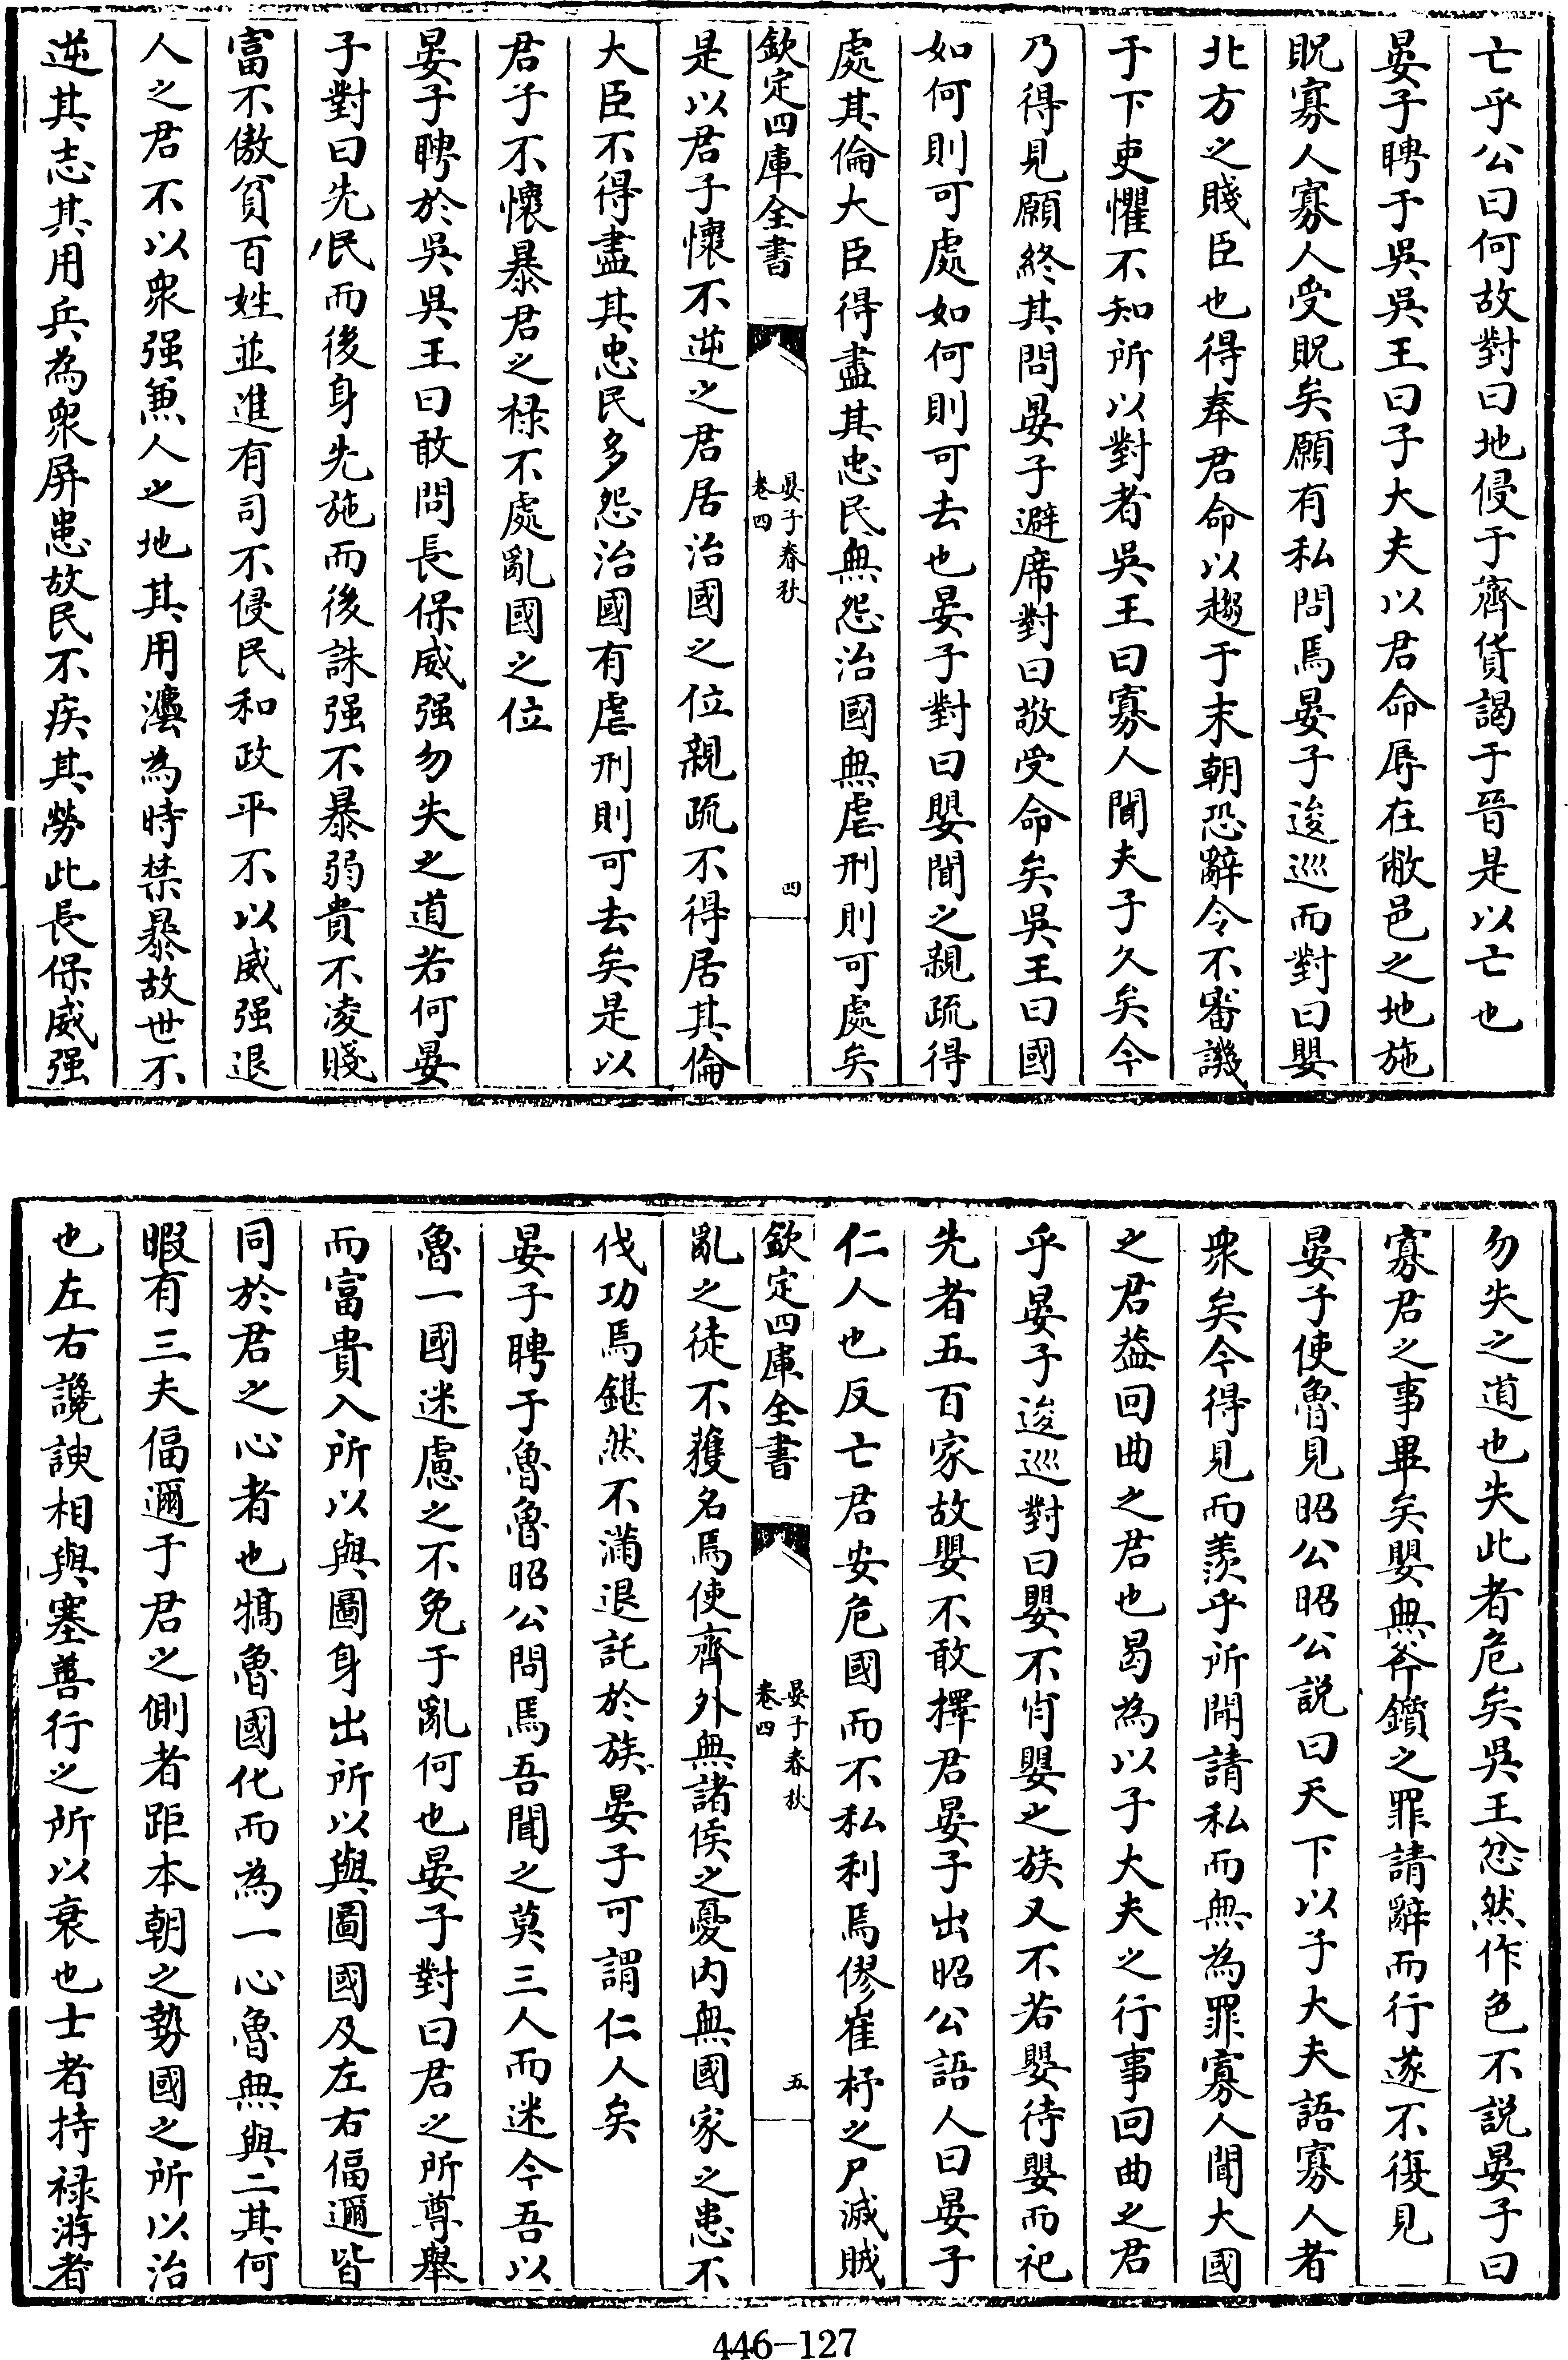 亡乎公曰何故對曰地侵于齊貨謁于晉是以亡也
晏子聘于吳吳王曰子大夫以君命辱在敝邑之地施
貺寡人寡人受貺矣願有私問焉晏子逡巡而對曰嬰
北方之賤臣也得奉君命以趨于末朝恐辭令不審譏
于下吏懼不知所以對者吳王曰寡人聞夫子久矣今
乃得見願終其問晏子避席對曰敬受命矣吳王曰國
如何則可處如何則可去也晏子對曰嬰聞之親疏得
處其倫大臣得盡其忠民無怨治國無虐刑則可處矣
欽定四庫全書
晏子春秋
卷四
四
是以君子懷不逆之君居治國之位親疏不得居其倫
大臣不得盡其忠民多怨治國有虐刑則可去矣是以
君子不懷暴君之祿不處亂國之位
晏子聘於吳吳王曰敢問長保威强勿失之道若何晏
子對曰先民而後身先施而後誅强不暴弱貴不凌賤
富不傲貧百姓並進有司不侵民和政平不以威强退
人之君不以衆强兼人之地其用灋為時禁暴故世不
逆其志其用兵為衆屏患故民不疾其勞此長保威强
勿失之道也失此者危矣吳王忿然作色不説晏子曰
寡君之事畢矣嬰無斧鑕之罪請辭而行遂不復見
晏子使魯見昭公昭公説曰天下以子大夫語寡人者
衆矣今得見而羡乎所聞請私而無為罪寡人聞大國
之君葢回曲之君也曷為以子大夫之行事回曲之君
乎晏子逡巡對曰嬰不肖嬰之族又不若嬰待嬰而祀
先者五百家故嬰不敢擇君晏子出昭公語人曰晏子
仁人也反亡君安危國而不私利焉僇崔杼之尸滅賊
欽定四庫全書
晏子春秋
卷四
五
亂之徒不獲名焉使齊外無諸侯之憂内無國家之患不
伐功焉鍖然不滿退託於族晏子可謂仁人矣
晏子聘于魯魯昭公問焉吾聞之莫三人而迷今吾以
魯一國迷慮之不免于亂何也晏子對曰君之所尊舉
而富貴入所以與圖身出所以與圖國及左右偪邇皆
同於君之心者也犒魯國化而為一心魯無與二其何
暇有三夫偪邇于君之側者距本朝之勢國之所以治
也左右讒諛相與塞善行之所以衰也士者持祿游者
446-127